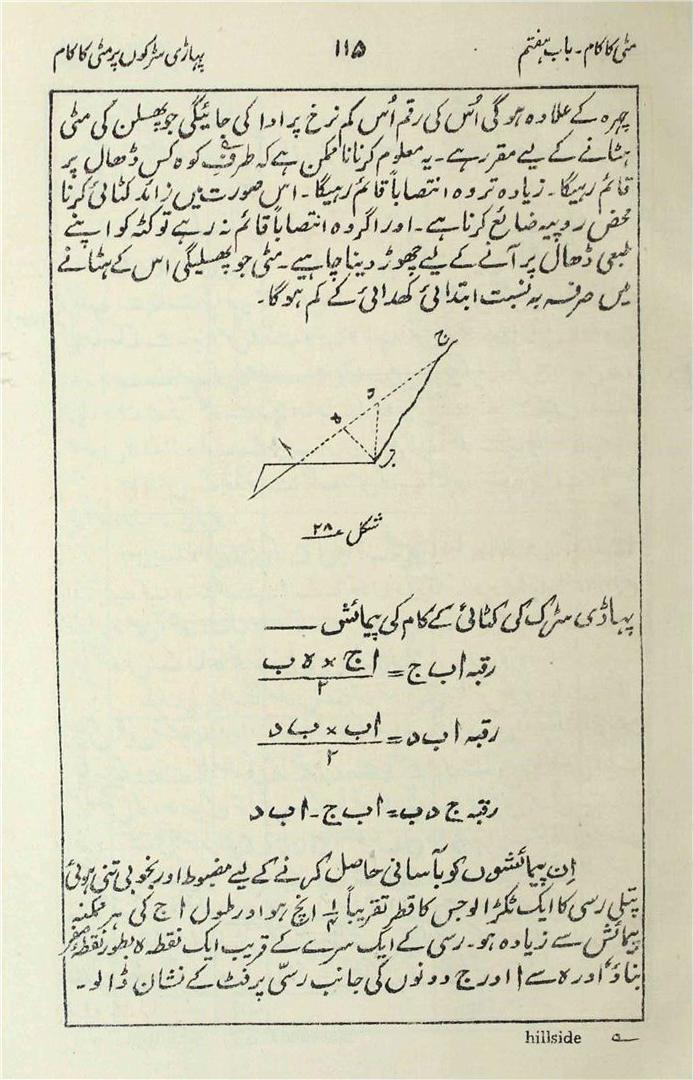 مٹی کا کام - باب ہفتم ۱۱۵ پہاڑی سڑکوں پر مٹی کا کام
چہرہ کے علاوہ ہوگی اُس کی رقم اُس کم نرخ پر ادا کی جائیگی جو پھسلن کی مٹی
ہٹانے کے لیے مقرر ہے۔ یہ معلوم کرنا ناممکن ہے کہ طرفِ کوہ کس ڈھال پر
قائم رہیگا۔ زیادہ تر وہ انتصاباً قائم رہیگا۔ اس صورت میں زائد کٹائی کرنا
محض روپیہ ضائع کرنا ہے۔ اور اگر وہ انتصاباً قائم نہ رہے تو کٹہ کو اپنے
طبعی ڈھال پر آنے کے لیے چھوڑ دینا چاہیے۔ مٹی جو پھسلیگی اس کے ہٹانے
میں صرفہ بہ نسبت ابتدائی کھدائی کے کم ہوگا۔
ج
د
ہ
ا
ب
شکل ۲۸
پہاڑی سڑک کی کٹائی کے کام کی پیمائش ——
رقبہ ا ب ج = ا ج × ہ ب
۲
رقبہ ا ب د = ا ب × ب د
۲
رقبہ ج د ب = ا ب ج - ا ب د
اِن پیمائشوں کو بآسانی حاصل کرنے کے لیے مضبوط اور بخوبی تنی ہوئی
پتلی رسی کا ایک ٹکڑا لو جس کا قطر تقریباً ۱/۴ انچ ہو اور طول ا ج کی ہر ممکنہ
پیمائش سے زیادہ ہو۔ رسی کے ایک سرے کے قریب ایک نقطہ ہ بطور نقطہ صفر
بناؤ اور ہ سے ا اور ج دونوں کی جانب رسّی پر فٹ کے نشان ڈالو۔
hillside ۵